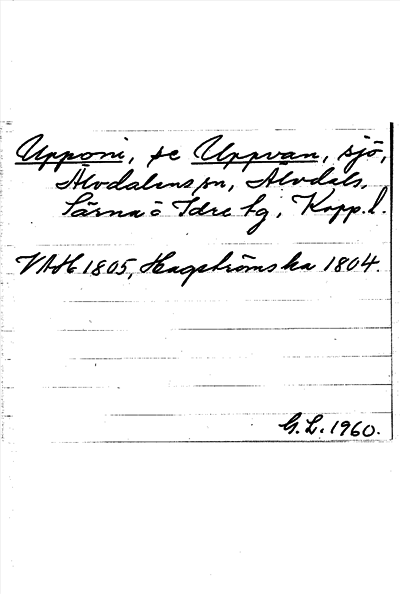 Upponi, se Uppvan, sjö,
Älvdalens sn, Älvdals,
Särna o Idre tg, Kopp. l.
VAH 1805, Hagströms ka 1804.
G. L. 1960.